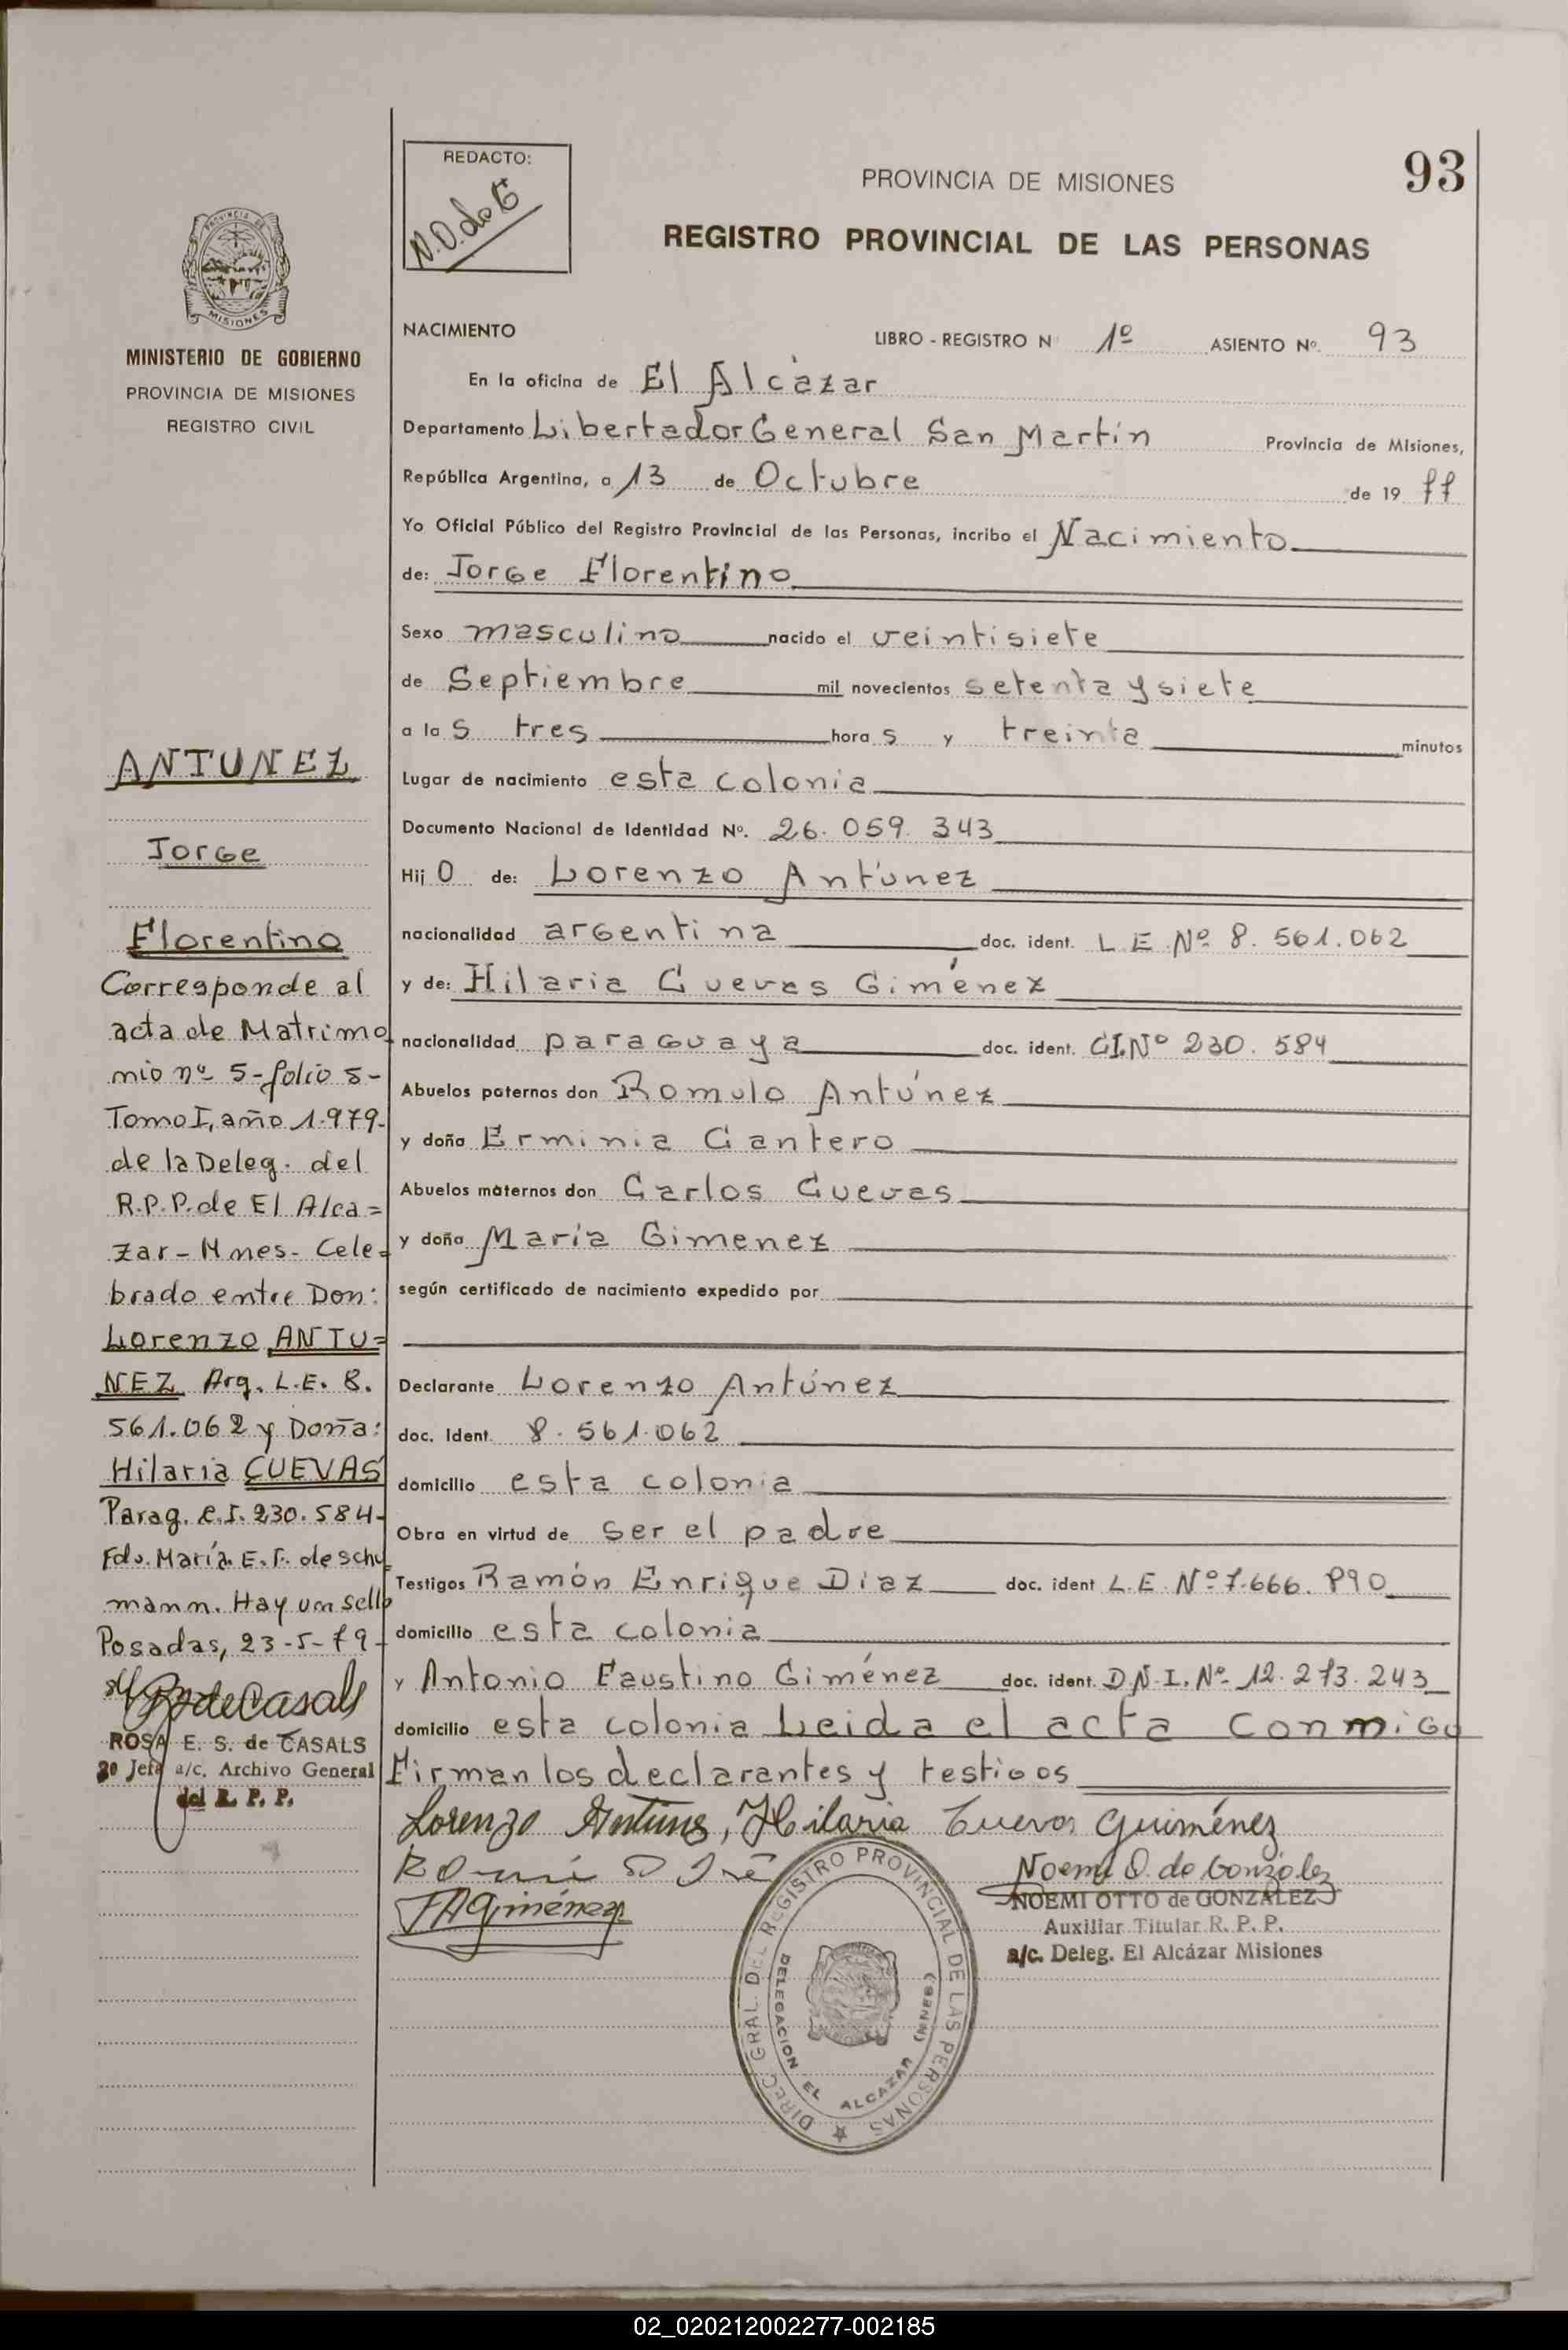 REDACTO:
N.O.de G
PROVINCIA DE MISIONES
93
REGISTRO PROVINCIAL DE LAS PERSONAS
PROVINCIA DE
MISIONES
MINISTERIO DE GOBIERNO
PROVINCIA DE MISIONES
REGISTRO CIVIL
NACIMIENTO LIBRO - REGISTRO N 1º ASIENTO Nº. 93
En la oficina de El Alcázar
Departamento Libertador General San Martín Provincia de Misiones,
República Argentina, a 13 de Octubre de 19 77
Yo Oficial Público del Registro Provincial de las Personas, incribo el Nacimiento
de: Jorge Florentino
Sexo masculino nacido el veintisiete
de Septiembre mil novecientos setenta y siete
a la s tres hora s y treinta minutos
Lugar de nacimiento esta colonia
Documento Nacional de Identidad Nº. 26.059.343
Hij o de: Lorenzo Antúnez
nacionalidad argentina doc. ident. L E Nº 8.561.062
y de: Hilaria Cuevas Giménez
nacionalidad paraguaya doc. ident. C.I.Nº 230.584
Abuelos paternos don Romulo Antúnez
y doña Erminia Cantero
Abuelos maternos don Carlos Cuevas
y doña María Gimenez
según certificado de nacimiento expedido por
Declarante Lorenzo Antúnez
doc. Ident. 8.561.062
domicilio esta colonia
Obra en virtud de ser el padre
Testigos Ramón Enrique Diaz doc. ident L.E Nº 7.666.890
domicilio esta colonia
y Antonio Faustino Giménez doc. ident. D.N.I.Nº 12.273.243
domicilio esta colonia Leida el acta conmigo
Firman los declarantes y testigos
Lorenzo Antunez, Hilaria Cueva Guiménez
Giménez
Noemi O. de González
NOEMI OTTO de GONZALEZ
Auxiliar Titular R. P. P.
a/c. Deleg. El Alcázar Misiones
DIREC. GRAL. DEL REGISTRO PROVINCIAL DE LAS PERSONAS
DELEGACION EL ALCAZAR (MNES)
ANTUNEZ
Jorge
Florentino
Corresponde al
acta de Matrimo
nio nº 5-folio 5-
Tomo I, año 1.979-
de la Deleg. del
R.P.P. de El Alca=
zar-Mnes- Cele=
brado entre Don:
Lorenzo ANTU=
NEZ Arg. L.E. 8.
561.062 y Doña:
Hilaria CUEVAS
Parag. C.I. 230.584-
Fdo. María E. F. de Schu
mann. Hay un sello
Posadas, 23-5-79-
RdeCasals
ROSA E. S. de CASALS
2º Jefe a/c. Archivo General
del R. P. P.
02_020212002277-002185